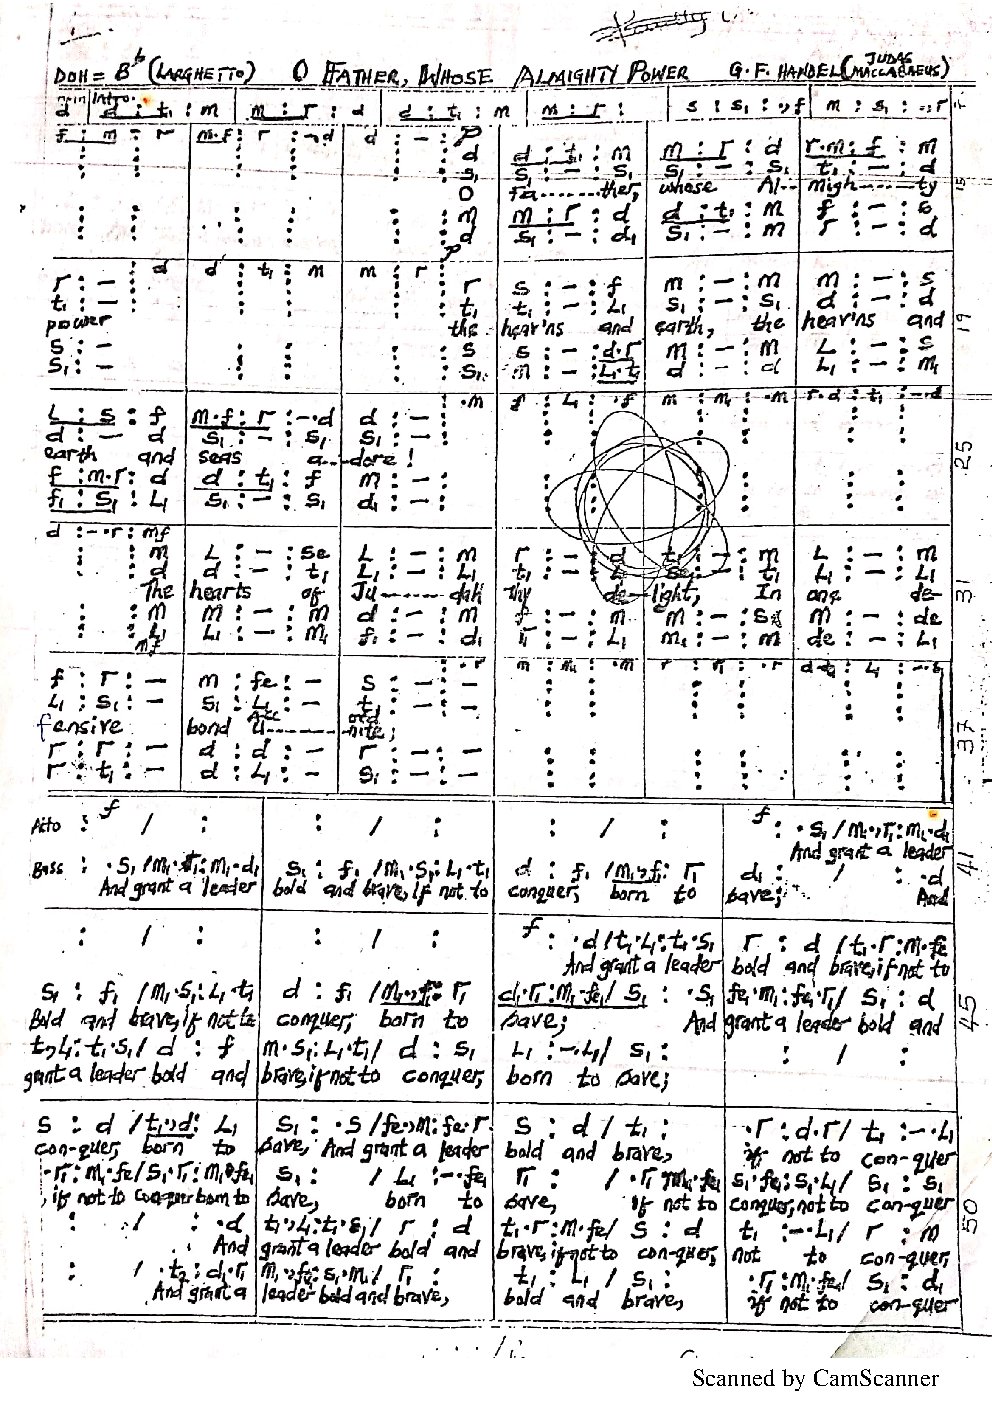 DOH = Bb (LARGHETTO) O FATHER, WHOSE ALMIGHTY POWER G. F. HANDEL (JUDAS MACCABAEUS)
Intro.
d : t₁ : m | m : r : d | d : t₁ : m | m : r : | s : s₁ : ., f | m : s₁ :
f : m : r | m.f : r : -.d | d : - : p
d | d : t₁ : m | m : r : d | r.m : f : m
s₁ | s₁ : - : s₁ | s₁ : - : s₁ | t₁ : - : d
O Fa--------ther, whose Al-- migh------ty
m | m : r : d | d : t₁ : m | f : - : s
d | s₁ : - : d₁ | s₁ : - : m | r : - : d
15
d | d : t₁ : m | m : r : p
r : - | r | s : - : f | m : - : m | m : - : s
t₁ : - | t₁ | t₁ : - : L₁ | s₁ : - : s₁ | d : - : d
power the heav'ns and earth, the heav'ns and
s : - | s | s : - : d.r | m : - : m | L : - : s
s₁ : - | s₁ | m : - : L₁.t₁ | d : - : d | L₁ : - : m₁
19
.m | f : L₁ : .f | m : m₁ : .m | r.d : t₁ : -.d
L : s : f | m.f : r : -.d | d : -
d : - : d | s₁ : - : s₁ | s₁ : -
earth and seas a---dore !
f : m.r : d | d : t₁ : f | m : -
f₁ : s₁ : L₁ | s₁ : - : s₁ | d₁ : -
25
d : -.r : mf
m | L : - : se | L : - : m | r : - : d | t₁ : - : m | L : - : m
d | d : - : t₁ | L₁ : - : L₁ | t₁ : - : L₁ | se₁ : - : t₁ | L₁ : - : L₁
The hearts of Ju-------dah thy de--light, In one de-
m | m : - : m | d : - : m | f : - : m | m : - : se | m : - : de
L₁ | L₁ : - : m₁ | f₁ : - : d₁ | r₁ : - : L₁ | m₁ : - : m | de : - : L₁
mf
31
.r | m : m₁ : .m | r : r₁ : .r | d.t₁ : L₁ : -.s₁
f : r : - | m : fe : - | s : - : -
L₁ : s₁ : - | s₁ : L₁ : - | t₁ : - : -
fensive bond U---------nite;
r : r : - | d : d : - | r : - : -
r : t₁ : - | d : L₁ : - | s₁ : - : -
37
Alto : f / : | : / : | : / : | f : .s₁ / m₁.,r₁ : m₁.d₁
And grant a leader
Bass : .s₁ / m₁.r₁ : m₁.d₁ | s₁ : f₁ / m₁.s₁ : L₁.t₁ | d : f₁ / m₁.,f₁ : r₁ | d₁ : / : .d
And grant a leader bold and brave, if not to conquer, born to save; And
41
: / : | : / : | f : .d / t₁.L₁ : t₁.s₁ | r : d / t₁.r : m.fe
And grant a leader bold and brave, if not to
s₁ : f₁ / m₁.s₁ : L₁.t₁ | d : f₁ / m₁.,f₁ : r₁ | d₁.r₁ : m₁.fe₁ / s₁ : .s₁ | fe₁.m₁ : fe₁.r₁ / s₁ : d
Bold and brave, if not to conquer, born to save; And grant a leader bold and
45
t₁.,L₁ : t₁.s₁ / d : f | m.s₁ : L₁.t₁ / d : s₁ | L₁ : -.L₁ / s₁ : | : / :
grant a leader bold and brave, if not to conquer, born to save;
s : d / t₁.,d : L₁ | s₁ : .s / fe.,m : fe.r | s : d / t₁ : | .r : d.r / t₁ : -.L₁
con-quer, born to save, And grant a leader bold and brave, if not to con-quer
.r₁ : m₁.fe₁ / s₁.r₁ : m₁.fe₁ | s₁ : / L₁ : -.fe₁ | r₁ : / .r₁ : m₁.fe₁ | s₁.fe₁ : s₁.L₁ / s₁ : s₁
, if not to conquer born to save, born to save, if not to conquer, not to con-quer
50
: / : .d | t₁.,L₁ : t₁.s₁ / r : d | t₁.r : m.fe / s : d | t₁ : -.L₁ / r : m
And grant a leader bold and brave, if not to con-quer, not to con-quer,
: / .t₂ : d₁.r₁ | m₁.,fe₁ : s₁.m₁ / r₁ : | t₁ : L₁ / s₁ : | .r₁ : m₁.fe₁ / s₁ : d₁
And grant a leader bold and brave, bold and brave, if not to con-quer
Scanned by CamScanner